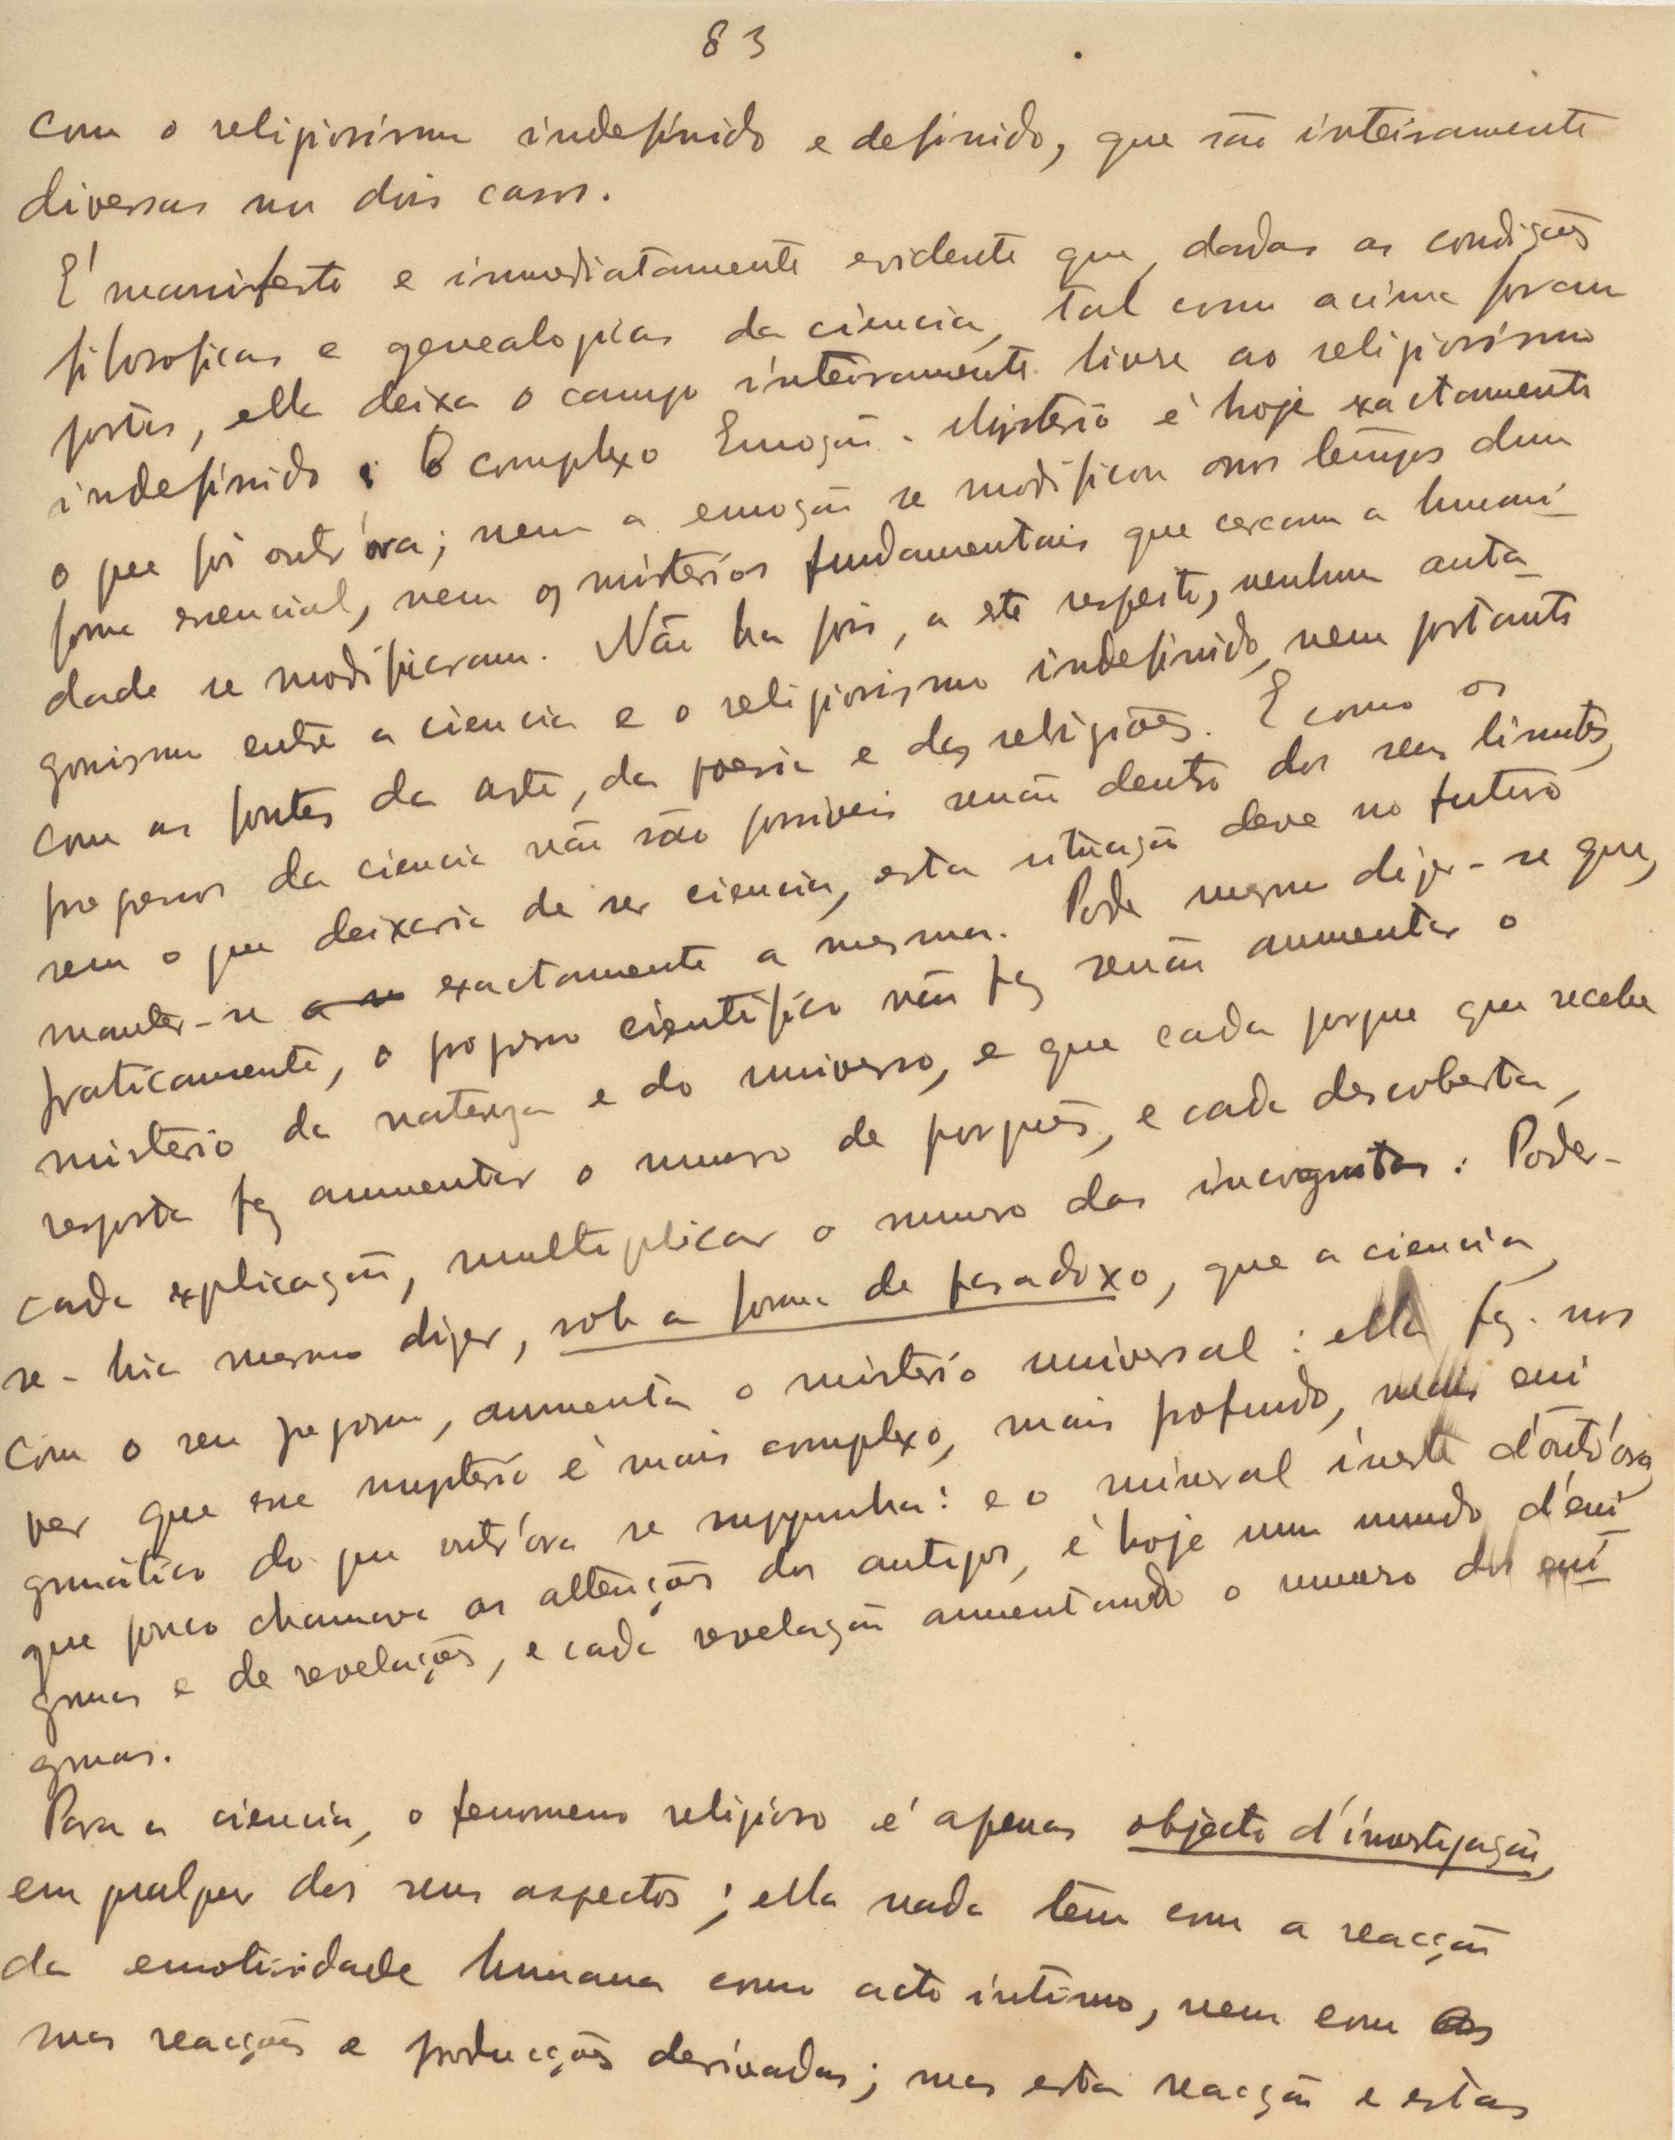 83
com o religiosismo indefinido e definido, que são inteiramente
diversas nos dois casos.
É manifesto e immediatamente evidente que, dadas as condições
filosoficas e genealogicas da ciencia, tal como acima foram
postas, ella deixa o campo inteiramente livre ao religiosismo
indefinido; O complexo Emoção-Mysterio é hoje exactamente
o que foi outr'ora; nem a emoção se modificou nos tempos dum
forma essencial, nem os misterios fundamentais que cercam a humani-
dade se modificaram. Não ha pois, a este respeito, nenhum anta-
gonismo entre a ciencia e o religiosismo indefinido, nem portanto
com as fontes da arte, da poesia e das religiões. E como os
progressos da ciencia não são possiveis senão dentro dos seus limites,
sem o que deixaria de ser ciencia, esta situação deve no futuro
manter-se exactamente a mesma. Pode mesmo dizer-se que,
praticamente, o progresso cientifico não faz senão aumentar o
misterio da natureza e do universo, e que cada porque que recebe
resposta faz aumentar o numero de porquês, e cada descoberta,
cada explicação, multiplicar o numero das incognitas: Poder-
se-hia mesmo dizer, sob a forma de paradoxo, que a ciencia,
com o seu progresso, aumenta o misterio universal: ella faz-nos
ver que esse mysterio é mais complexo, mais profundo, mais eni
gmático do que outr'ora se suppunha: e o mineral inerte d'outr'ora,
que pouco chamava as attenções dos antigos, é hoje um mundo d'eni
gmas e de revelações, e cada revelação aumentando o numero dos eni-
gmas.
Para a ciencia, o fenomeno religioso é apenas objecto d'investigação,
em qualquer dos seus aspectos; ella nada tem com a reacção
da emotividade humana como acto intimo, nem com as
suas reacções e producções derivadas; mas esta reacção e estas